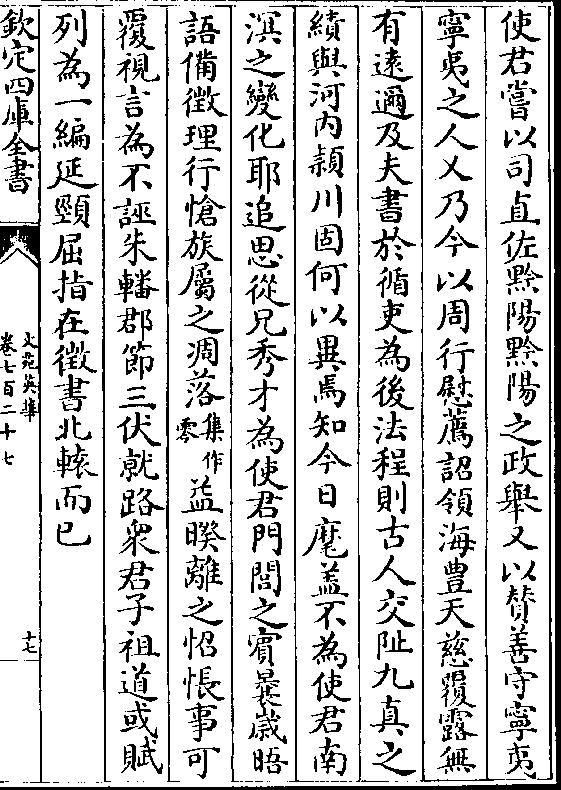 使君嘗以司直佐黔陽黔陽之政舉又以贊善守寧夷
寧夷之人乂乃今以周行慰薦詔領海豊天慈覆露無
有遠邇及夫書於循吏為後法程則古人交阯九真之
績與河内潁川固何以異焉知今日麾盖不為使君南
溟之變化耶追思從兄秀才為使君門閭之賓曩歳晤
語備徵理行愴族屬之凋落集作零益暌離之怊悵事可
覆視言為不誣朱轓郡節三伏就路衆君子祖道或賦
列為一編延頸屈指在徵書北轅而已
欽定四庫全書
文苑英華
卷七百二十七
十七